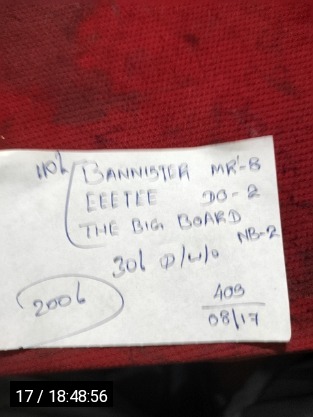 110L BANNISTER MR-8
EEETEE DO-2
THE BIG BOARD
NB-2
30L P/W/O
200L
409
08/17
17 / 18:48:56